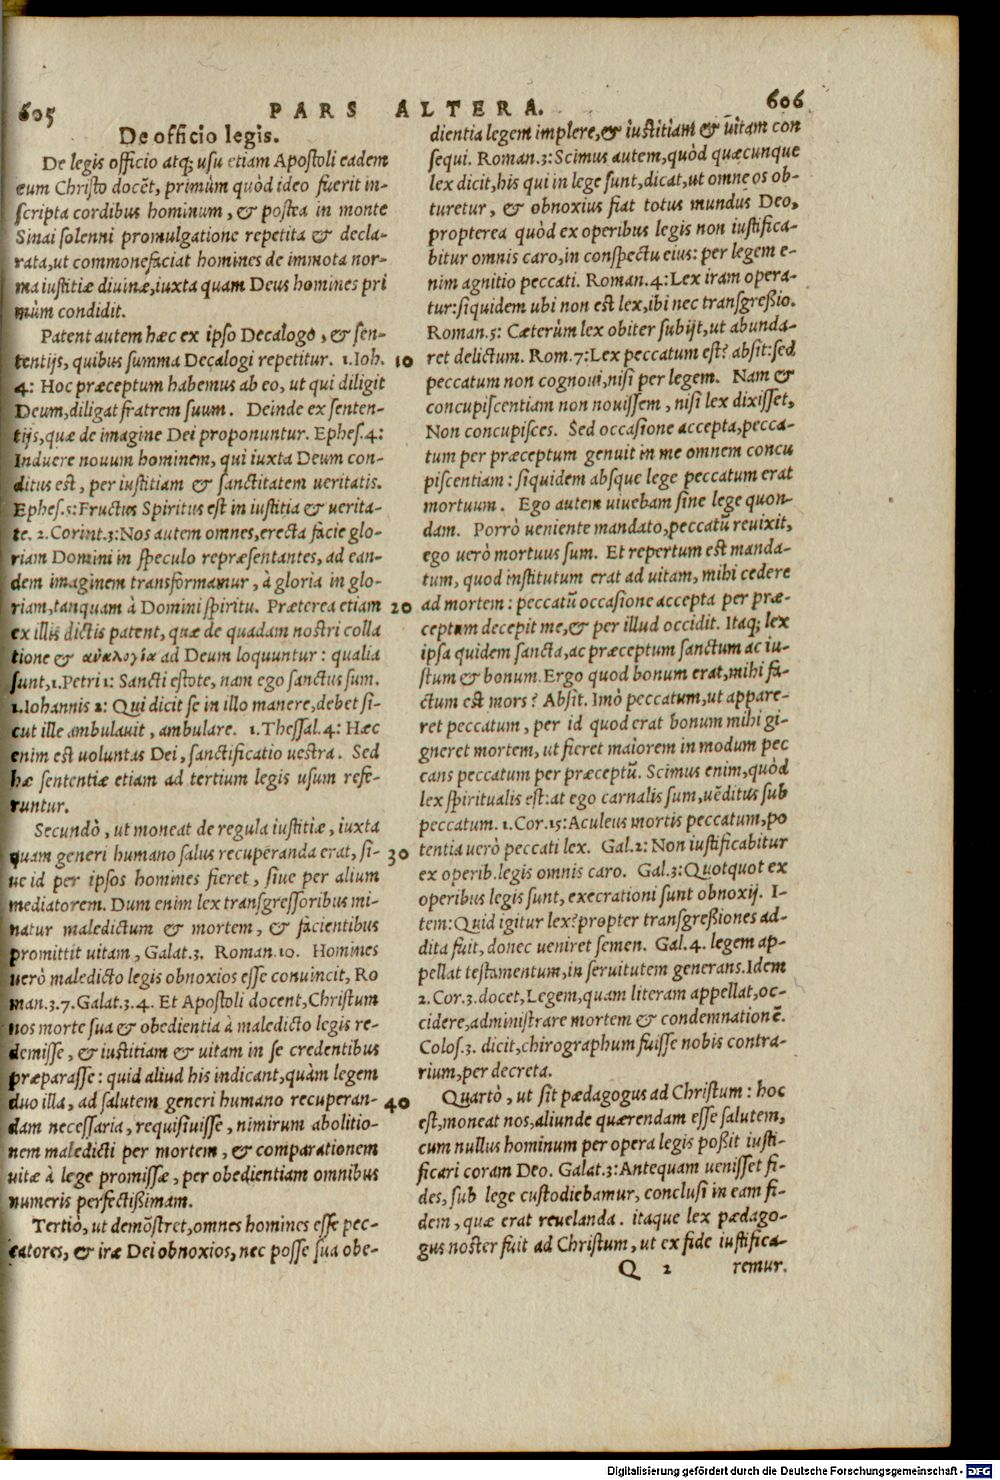 605 PARS ALTERA. 606
De officio legis.
De legis officio atq; usu etiam Apostoli eadem
cum Christo docēt, primùm quòd ideo fuerit in-
scripta cordibus hominum, & postea in monte
Sinai solenni promulgatione repetita & decla-
rata, ut commonefaciat homines de immota nor-
ma iustitiæ diuinæ, iuxta quam Deus homines pri
mùm condidit.
Patent autem hæc ex ipso Decalogo, & sen-
tentijs, quibus summa Decalogi repetitur. 1. Ioh.
4: Hoc præceptum habemus ab eo, ut qui diligit
Deum, diligat fratrem suum. Deinde ex senten-
tijs, quæ de imagine Dei proponuntur. Ephes. 4:
Induere nouum hominem, qui iuxta Deum con-
ditus est, per iustitiam & sanctitatem ueritatis.
Ephes. 5: Fructus Spiritus est in iustitia & uerita-
te. 2. Corint. 3: Nos autem omnes, erecta facie glo-
riam Domini in speculo repræsentantes, ad ean-
dem imaginem transformamur, à gloria in glo-
riam, tanquam à Domini spiritu. Præterea etiam
ex illis dictis patent, quæ de quadam nostri colla
tione & ἀναλογία ad Deum loquuntur: qualia
sunt, 1. Petri 1: Sancti estote, nam ego sanctus sum.
1. Iohannis 2: Qui dicit se in illo manere, debet si-
cut ille ambulauit, ambulare. 1. Thessal. 4: Hæc
enim est uoluntas Dei, sanctificatio uestra. Sed
hæ sententiæ etiam ad tertium legis usum refe-
runtur.
Secundò, ut moneat de regula iustitiæ, iuxta
quam generi humano salus recuperanda erat, si-
ue id per ipsos homines fieret, siue per alium
mediatorem. Dum enim lex transgressoribus mi-
natur maledictum & mortem, & facientibus
promittit uitam, Galat. 3. Roman. 10. Homines
uerò maledicto legis obnoxios esse conuincit, Ro
man. 3. 7. Galat. 3. 4. Et Apostoli docent, Christum
nos morte sua & obedientia à maledicto legis re-
demisse, & iustitiam & uitam in se credentibus
præparasse: quid aliud his indicant, quàm legem
duo illa, ad salutem generi humano recuperan-
dam necessaria, requisiuisse, nimirum abolitio-
nem maledicti per mortem, & comparationem
uitæ à lege promissæ, per obedientiam omnibus
numeris perfectißimam.
Tertiò, ut demōstret, omnes homines esse pec-
catores, & iræ Dei obnoxios, nec posse sua obe-
10
20
30
40
dientia legem implere, & iustitiam & uitam con
sequi. Roman. 3: Scimus autem, quòd quæcunque
lex dicit, his qui in lege sunt, dicat, ut omne os ob-
turetur, & obnoxius fiat totus mundus Deo,
propterea quòd ex operibus legis non iustifica-
bitur omnis caro, in conspectu eius: per legem e-
nim agnitio peccati. Roman. 4: Lex iram opera-
tur: siquidem ubi non est lex, ibi nec transgreßio.
Roman. 5: Cæterùm lex obiter subijt, ut abunda-
ret delictum. Rom. 7: Lex peccatum est? absit: sed
peccatum non cognoui, nisi per legem. Nam &
concupiscentiam non nouissem, nisi lex dixisset,
Non concupisces. Sed occasione accepta, pecca-
tum per præceptum genuit in me omnem concu
piscentiam: siquidem absque lege peccatum erat
mortuum. Ego autem uiuebam sine lege quon-
dam. Porrò ueniente mandato, peccatū reuixit,
ego uerò mortuus sum. Et repertum est manda-
tum, quod institutum erat ad uitam, mihi cedere
ad mortem: peccatū occasione accepta per præ-
ceptum decepit me, & per illud occidit. Itaq; lex
ipsa quidem sancta, ac præceptum sanctum ac iu-
stum & bonum. Ergo quod bonum erat, mihi fa-
ctum est mors? Absit. Imò peccatum, ut appare-
ret peccatum, per id quod erat bonum mihi gi-
gneret mortem, ut fieret maiorem in modum pec
cans peccatum per præceptū. Scimus enim, quòd
lex spiritualis est: at ego carnalis sum, uēditus sub
peccatum. 1. Cor. 15: Aculeus mortis peccatum, po
tentia uerò peccati lex. Gal. 2: Non iustificabitur
ex operib. legis omnis caro. Gal. 3: Quotquot ex
operibus legis sunt, execrationi sunt obnoxij. I-
tem: Quid igitur lex? propter transgreßiones ad-
dita fuit, donec ueniret semen. Gal. 4. legem ap-
pellat testamentum, in seruitutem generans. Idem
2. Cor. 3. docet, Legem, quam literam appellat, oc-
cidere, administrare mortem & condemnationē.
Colos. 3. dicit, chirographum fuisse nobis contra-
rium, per decreta.
Quartò, ut sit pædagogus ad Christum: hoc
est, moneat nos, aliunde quærendam esse salutem,
cum nullus hominum per opera legis poßit iusti-
ficari coram Deo. Galat. 3: Antequam uenisset fi-
des, sub lege custodiebamur, conclusi in eam fi-
dem, quæ erat reuelanda. itaque lex pædago-
gus noster fuit ad Christum, ut ex fide iustifica-
Q 2 remur.
Digitalisierung gefördert durch die Deutsche Forschungsgemeinschaft - DFG